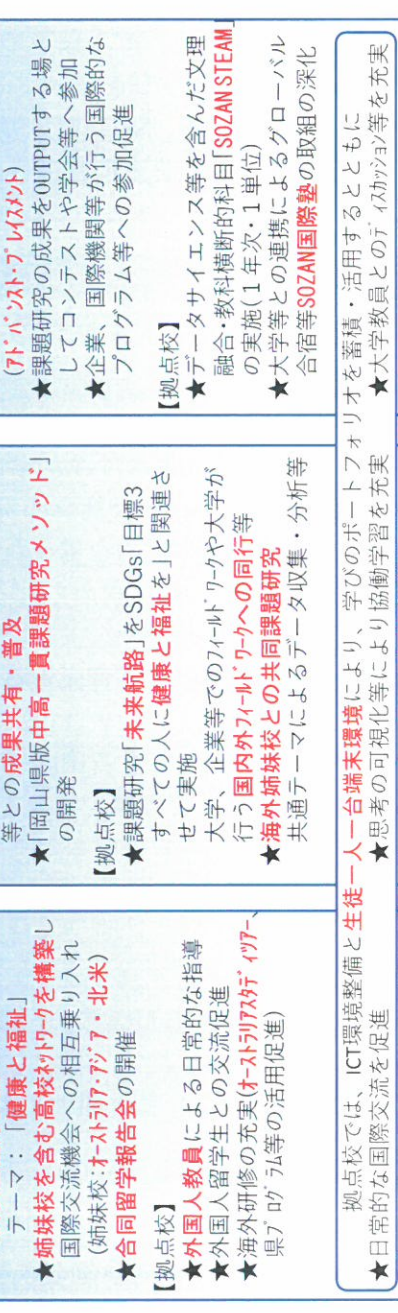 テーマ：「健康と福祉」
★姉妹校を含む高校ネットワークを構築し
国際交流機会への相互乗り入れ
(姉妹校:オーストラリア・アジア・北米)
★合同留学報告会の開催
【拠点校】
★外国人教員による日常的な指導
★外国人留学生との交流促進
★海外研修の充実(オーストラリアスタディツアー、
県プログラム等の活用促進)
等との成果共有・普及
★「岡山県版中高一貫課題研究メソッド」
の開発
【拠点校】
★課題研究「未来航路」をSDGs「目標3
すべての人に健康と福祉を」と関連さ
せて実施
大学、企業等でのフィールドワークや大学が
行う国内外フィールドワークへの同行等
★海外姉妹校との共同課題研究
共通テーマによるデータ収集・分析等
(アドバンスト・プレイスメント)
★課題研究の成果をOUTPUTする場と
してコンテストや学会等へ参加
★企業、国際機関等が行う国際的な
プログラム等への参加促進
【拠点校】
★データサイエンス等を含んだ文理
融合・教科横断的科目「SOZAN STEAM」
の実施(1年次・1単位)
★大学等との連携によるグローバル
合宿等SOZAN国際塾の取組の深化
拠点校では、ICT環境整備と生徒一人一台端末環境により、学びのポートフォリオを蓄積・活用するとともに
★日常的な国際交流を促進 ★思考の可視化等により協働学習を充実 ★大学教員とのディスカッション等を充実